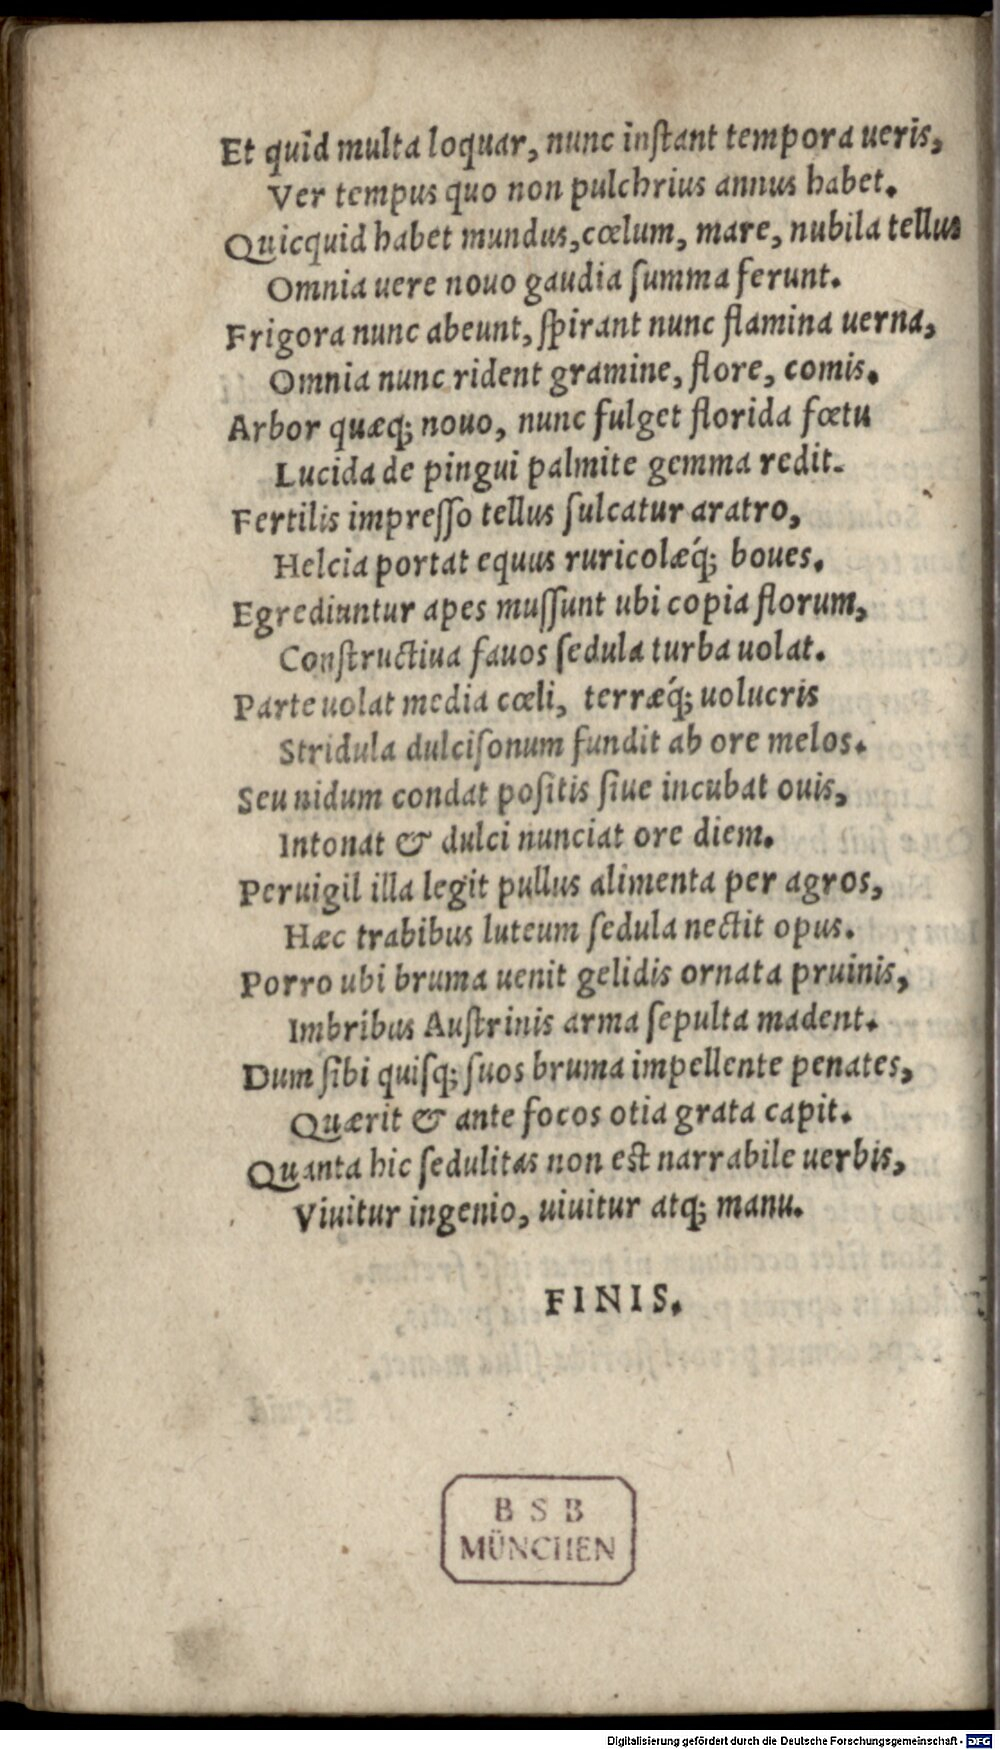 Et quid multa loquar, nunc inſtant tempora ueris,
Ver tempus quo non pulchrius annus habet.
Quicquid habet mundus, cœlum, mare, nubila tellus
Omnia uere nouo gaudia ſumma ferunt.
Frigora nunc abeunt, ſpirant nunc flamina uerna,
Omnia nunc rident gramine, flore, comis.
Arbor quæq; nouo, nunc fulget florida fœtu
Lucida de pingui palmite gemma redit.
Fertilis impreſſo tellus ſulcatur aratro,
Helcia portat equus ruricolæq́; boues.
Egrediuntur apes muſſunt ubi copia florum,
Conſtructiua fauos ſedula turba uolat.
Parte uolat media cœli, terræq́; uolucris
Stridula dulciſonum fundit ab ore melos.
Seu nidum condat poſitis ſiue incubat ouis,
Intonat & dulci nunciat ore diem.
Peruigil illa legit pullus alimenta per agros,
Hæc trabibus luteum ſedula nectit opus.
Porro ubi bruma uenit gelidis ornata pruinis,
Imbribus Auſtrinis arma ſepulta madent.
Dum ſibi quiſq; ſuos bruma impellente penates,
Quærit & ante focos otia grata capit.
Quanta hic ſedulitas non est narrabile uerbis,
Viuitur ingenio, uiuitur atq; manu.
FINIS.
B S B
MÜNCHEN
Digitalisierung gefördert durch die Deutsche Forschungsgemeinschaft - DFG